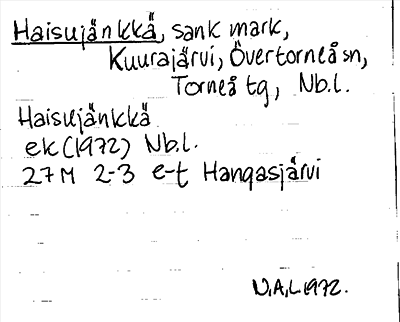 Haisujänkkä, sank mark,
Kuurajärvi, Övertorneå sn,
Torneå tg, Nb.l.
Haisujänkkä
ek (1972) Nb.l.
27M 2-3 e-t Hangasjärvi
N.A.L 1972.